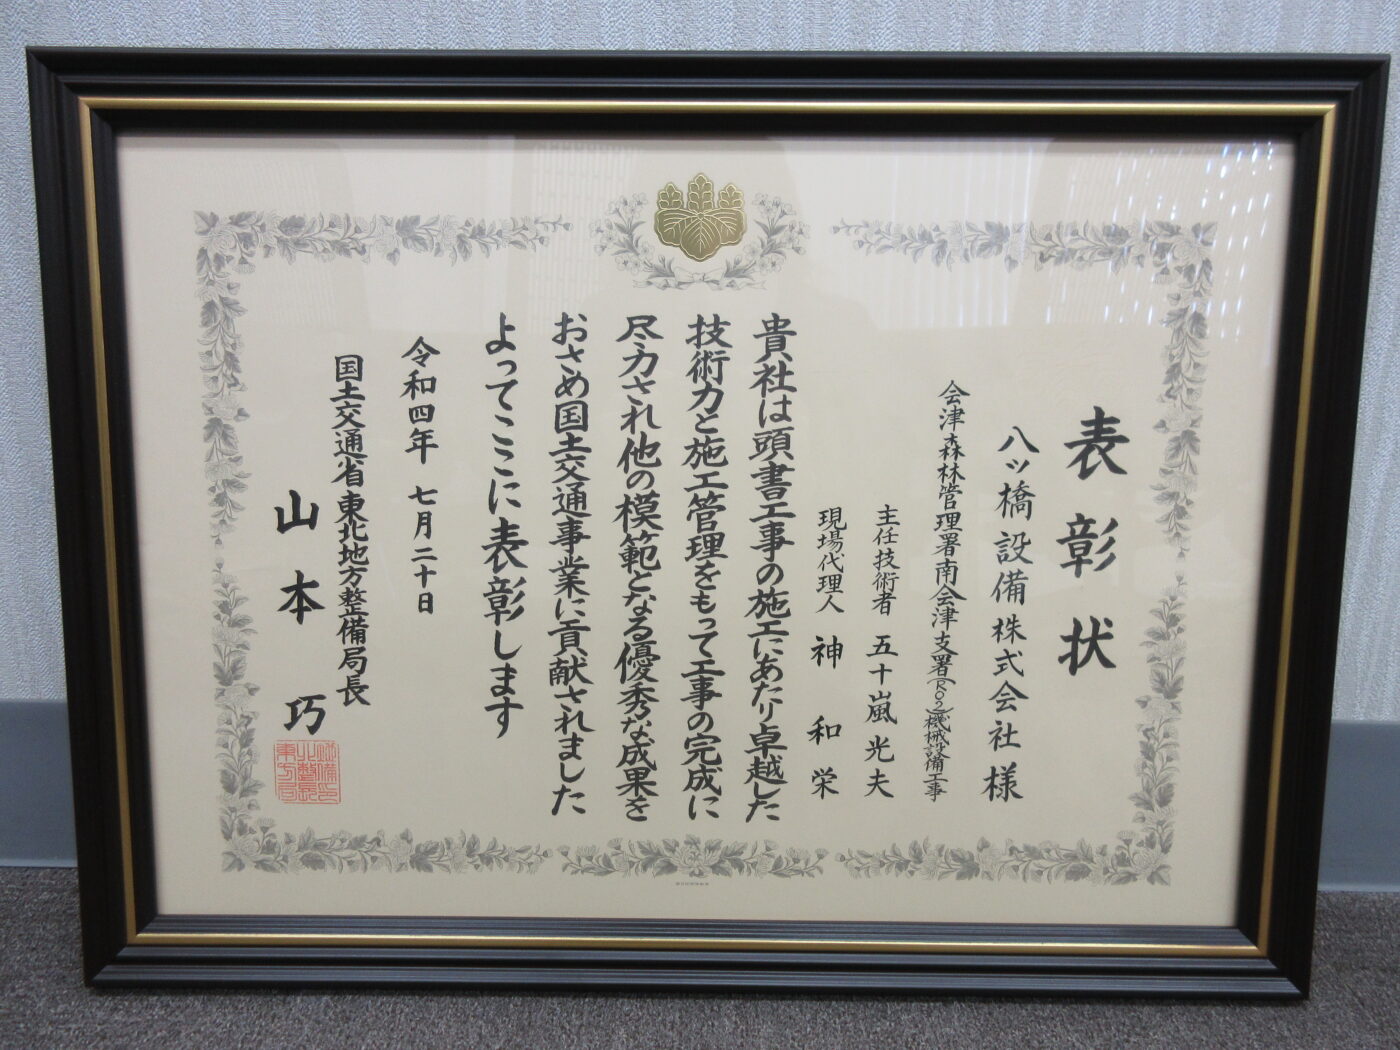 表彰状
八ッ橋設備株式会社様
会津森林管理署南会津支署(R02)機械設備工事
主任技術者 五十嵐光夫
現場代理人 神和栄
貴社は頭書工事の施工にあたり卓越した
技術力と施工管理をもって工事の完成に
尽力され他の模範となる優秀な成果を
おさめ国土交通事業に貢献されました
よってここに表彰します
令和四年 七月二十日
国土交通省東北地方整備局長
山本巧